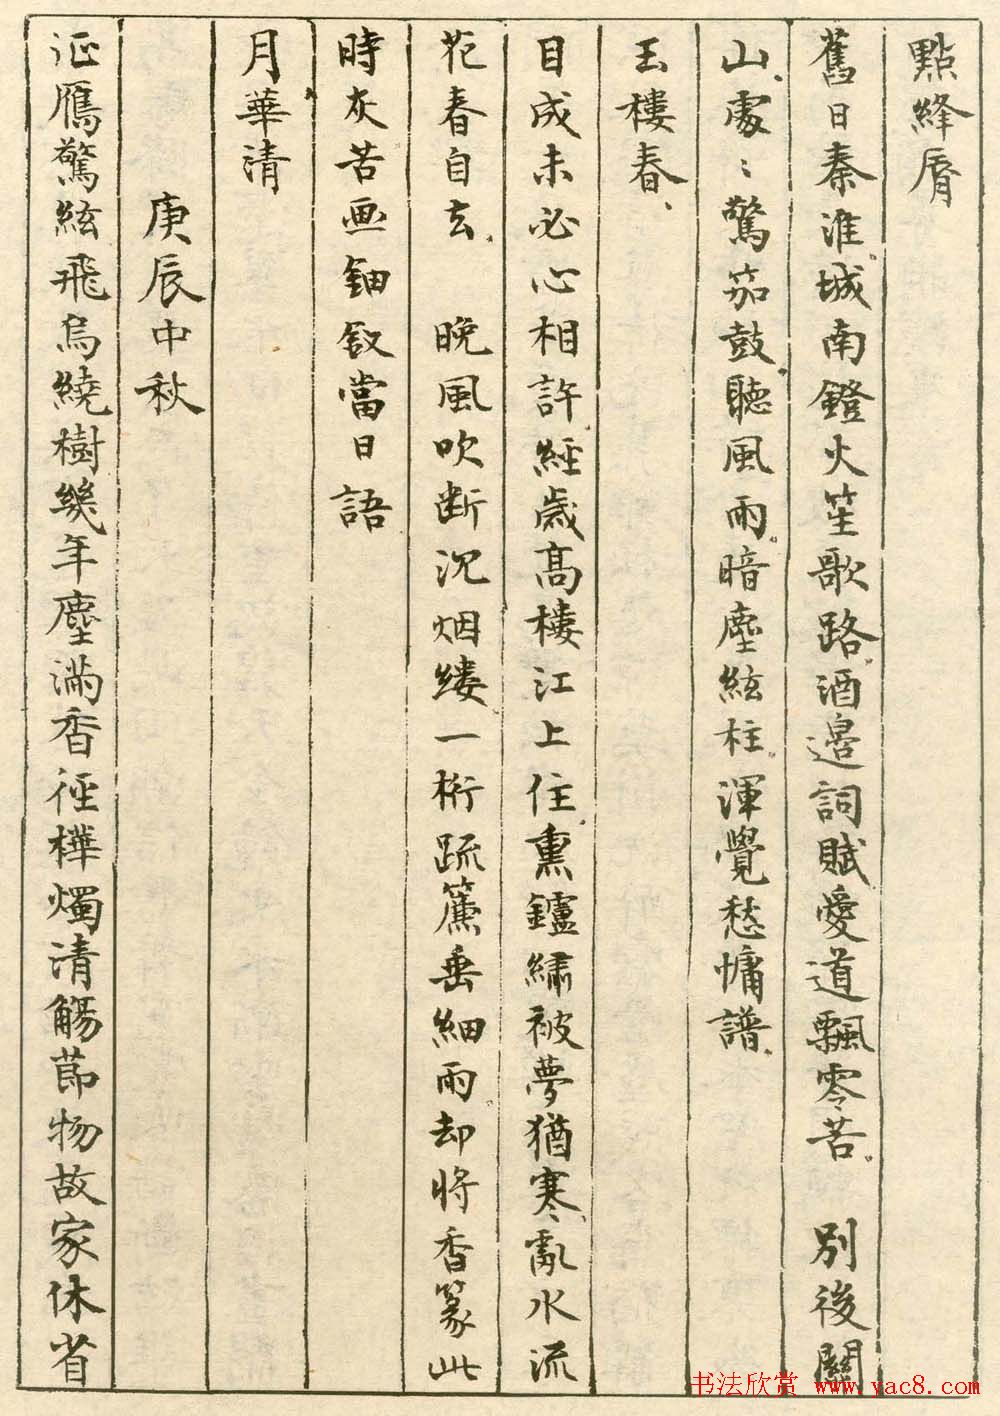 點絳脣
舊日秦淮城南鐙火笙歌路酒邊詞賦愛道飄零苦　別後關
山處〻驚笳鼓聽風雨暗塵絃柱渾覺愁慵譜
玉樓春
目成未必心相許經歲高樓江上住熏鑪繡被夢猶寒亂水流
花春自去　晚風吹斷沉烟縷一桁疏簾垂細雨却將香篆此
時灰苦画鈿釵當日語
月華清
庚辰中秋
征雁驚絃飛烏繞樹幾年塵滿香徑樺燭清觴節物故家休省
书法欣赏 www.yac8.com